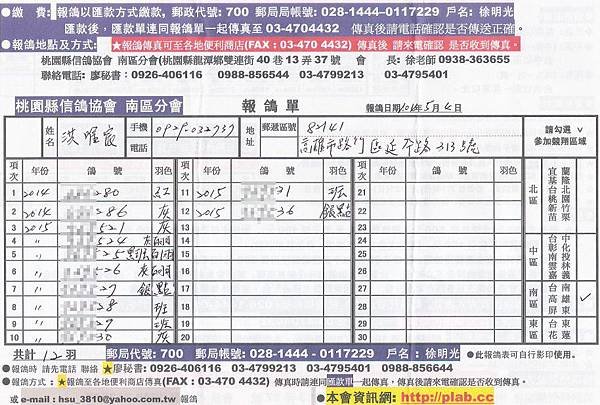 ●繳 費:報鴿以匯款方式繳款, 郵政代號: 700 郵局局帳號: 028-1444-0117229 戶名: 徐明光
匯款後, 匯款單連同報鴿單一起傳真至 03-4704432 傳真後請電話確認是否傳送正確。
●報鴿地點及方式: ★報鴿傳真可至各地便利商店(FAX : 03-470 4432) 傳真後 請來電確認 是否收到傳真。
桃園縣信鴿協會 南區分會(桃園縣龍潭鄉雙連街 40 巷 13 弄 37 號 會 長: 徐老師 0938-363655
聯絡電話: 廖秘書 : 0926-406116 0988-856544 03-4799213 03-4795401
桃園縣信鴿協會 南區分會 報鴿單 報鴿日期 104年5月4日
姓名 洪 手機 0929-032737 電話 地址 郵遞區號 82141
高雄市路竹區延平路313號
請勾選 ∨
參加競翔區域
項次 年份 鴿號 羽色 項次 年份 鴿號 羽色 項次 年份 鴿號 羽色
1 2014 280 紅 11 2015 31 斑 21
2 2014 286 灰 12 2015 36 銀點 22
3 2015 521 灰 13 23
4 〃 524 灰白羽 14 24
5 〃 525 白羽 15 25
6 〃 526 灰白羽 16 26
7 〃 27 銀點 17 27
8 〃 28 斑 18 28
9 〃 29 斑 19 29
10 〃 30 灰 20 30
北區 宜蘭 基隆 台北 桃園 新竹 苗栗
中區 台中 彰化 南投 雲林 嘉義
南區 台南 高雄 屏東 ✓
東區 台東 花蓮
共計 12 羽 郵局代號: 700 郵局帳號: 028-1444 - 0117229 戶名 : 徐明光 ●此報鴿表可自行影印使用。
●報鴿時 請先電話 聯絡 ★廖秘書: 0926-406116 03-4799213 03-4795401 0988-856644
●報鴿方式 : ★報鴿至各地便利商店傳真(FAX : 03-470 4432) 傳真時請連同匯款單一起傳真, 傳真後請來電確認是否收到傳真。
或 e-mail : hsu_3810@yahoo.com.tw 報鴿 ●本會資訊網: http://plab.cc